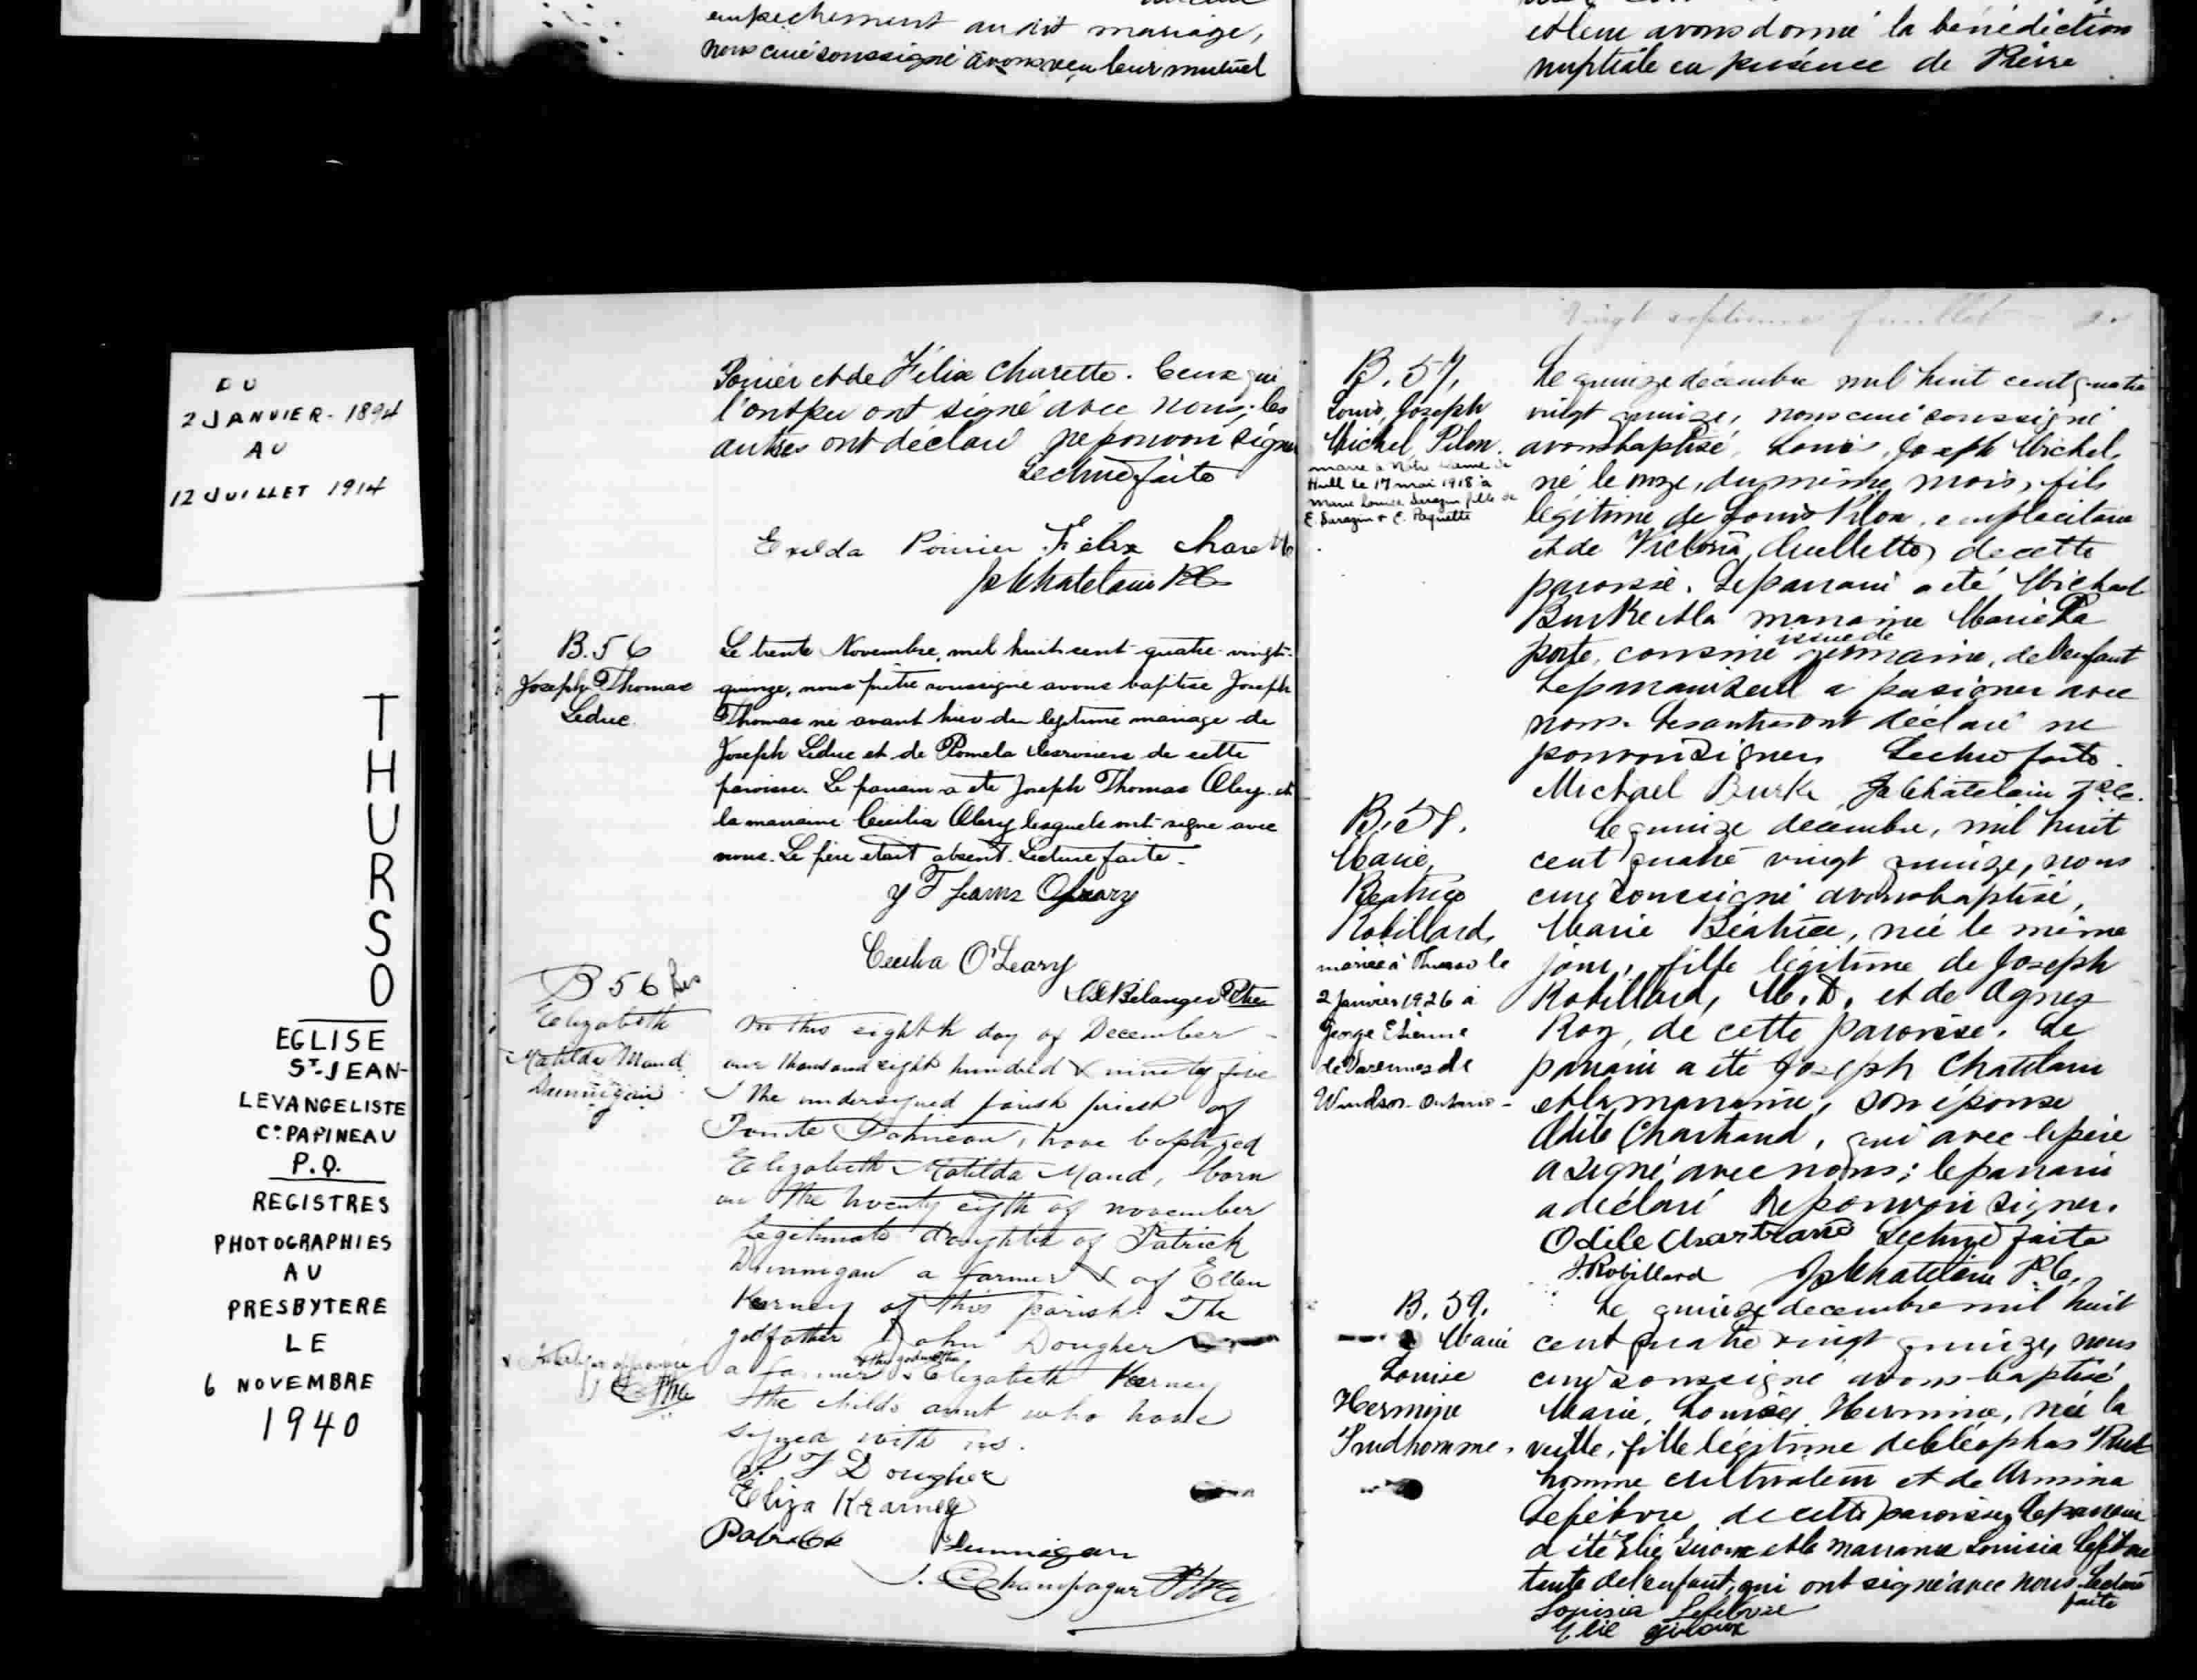 empechement au dit mariage,
nous curé soussigné avons reçu leur mutuel
et leur avons donné la bénédiction
nuptiale en présence de Pierre
DU
2 JANVIER - 1894
AU
12 JUILLET 1914
THURSO
EGLISE
ST-JEAN-
LEVANGELISTE
Co PAPINEAU
P.Q.
REGISTRES
PHOTOGRAPHIES
AU
PRESBYTERE
LE
6 NOVEMBRE
1940
Poirier et de Félix Charette. Ceux qui
l'ont pu ont signé avec nous; les
autres ont déclaré ne pouvoir signer
Lecture faite
Exilda Poirier Félix Charette
J Chatelain
B. 56
Joseph Thomas
Leduc
Le trente Novembre, mil huit cent quatre-vingt-
quinze, nous prêtre soussigné avons baptisé Joseph
Thomas né avant hier du legitime mariage de
Joseph Leduc et de Pomela de cette
paroisse. Le parrain a été Joseph Thomas Oleary et
la marraine Cecilia Oleary lesquels ont signé avec
nous. Le père etait absent. Lecture faite.
Oleary
Cecilia O'Leary
Belanger Ptre
B 56 bis
Elizabeth
Matilda Maud
Dunnigan
On this eighth day of December
one thousand eight hundred & ninety five
I the undersigned parish priest of
Pointe Papineau, have baptized
Elizabeth Matilda Maud, born
on the twenty eigth of november
legitimate daughter of Patrick
Dunnigan a farmer & of Ellen
Kearney of this parish. The
godfather John Dougher
a farmer & the godmother Elizabeth Kearney
the childs aunt who have
signed with us.
P. F Dougher
Eliza Krarney
Patrick Dunnigan
J. Champagne Ptre
Vingt septieme feuillet
B. 57.
Louis, Joseph
Michel, Pilon.
marié à Notre Dame de
Hull le 17 mai 1918 à
Marie Louise Sarazin fille de
E. Sarazin & C. Paquette
Le quinze décembre mil huit cent quatre
vingt quinze, nous curé soussigné
avons baptisé, Louis, Joseph Michel,
né le onze, du même mois, fils
légitime de Louis Pilon,
et de Victoria Ouellette, de cette
paroisse. Le parrain a été Michael
Burke et la marraine Marie La
porte, cousine issue de germaine, de l'enfant
Le parrain seul a pu signer avec
nous. Les autres ont déclaré ne
pouvoir signer. Lecture faite.
Michael Burke J Chatelain
B. 58.
Marie,
Beatrice
Robillard,
mariée à Thurso le
2 Janvier 1926 à
George Etienne
de Varennes de
Windsor - Ontario -
Le quinze décembre, mil huit
cent quatre vingt quinze, nous
curé soussigné avons baptisé,
Marie Béatrice, née le même
jour, fille légitime de Joseph
Robillard, M.D. et de Agnes
Roy, de cette paroisse. Le
parrain a été Joseph Chatelain
et la marraine, son épouse
Odile Chartrand, qui avec le père
a signé avec nous; le parrain
a déclaré ne pouvoir signer.
Odile Chartrand Lecture faite
J. Robillard J Chatelain
B. 59.
Marie
Louise
Hermine
Prudhomme.
Le quinze decembre mil huit
cent quatre vingt quinze, nous
curé soussigné avons baptisé
Marie, Louise, Hermine, née la
veille, fille légitime de Cléophas Prud
homme cultivateur et de Armina
Lefebvre de cette paroisse, le parrain
a été Elie et la marraine Louisia Lefebvre
tante de l'enfant, qui ont signé avec nous. Lecture
faite
Louisia Lefebvre
Elie